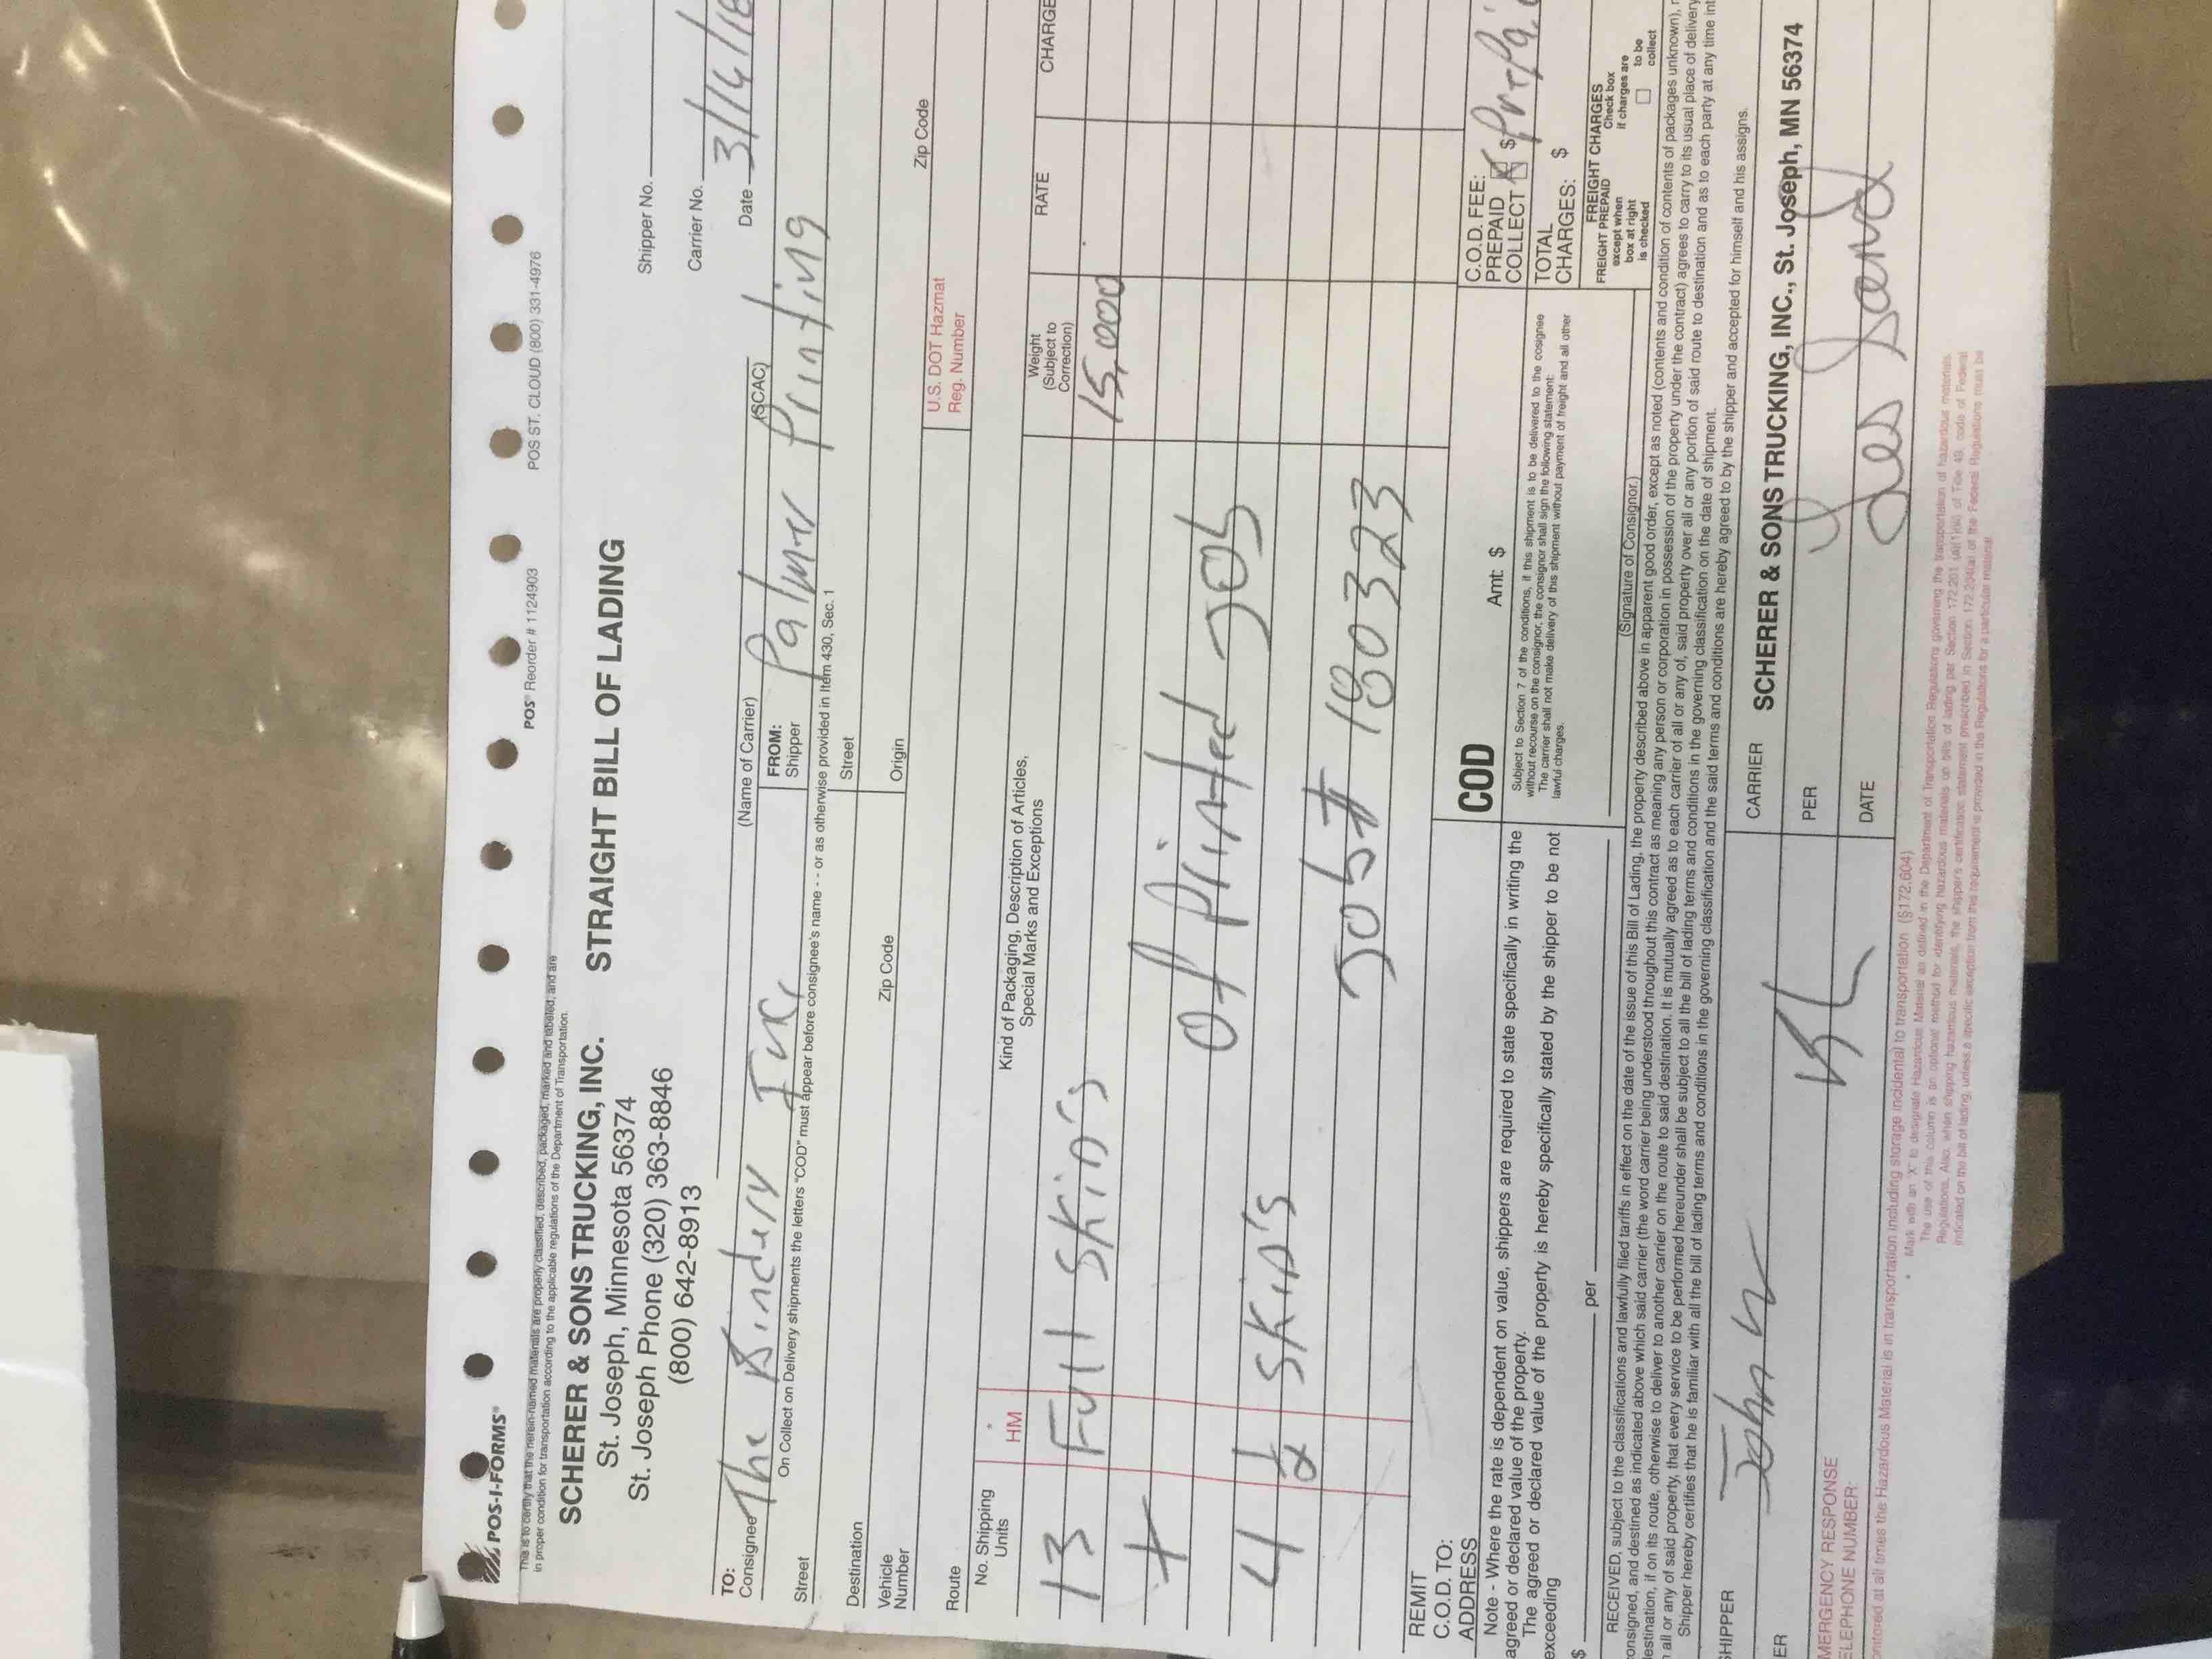 POS-I-FORMS®
POS® Reorder # 1124903
POS ST. CLOUD (800) 331-4976
This is to certify that the herein-named materials are properly classified, described, packaged, marked and labeled, and are
in proper condition for transportation according to the applicable regulations of the Department of Transportation.
SCHERER & SONS TRUCKING, INC.
STRAIGHT BILL OF LADING
St. Joseph, Minnesota 56374
St. Joseph Phone (320) 363-8846
(800) 642-8913
Shipper No.
Carrier No.
Date 3/14/18
(Name of Carrier)
(SCAC)
TO:
Consignee The Bindery Inc.
FROM:
Shipper Palmer Printing
On Collect on Delivery shipments the letters "COD" must appear before consignee's name - - or as otherwise provided in Item 430, Sec. 1
Street
Street
Destination
Zip Code
Origin
Zip Code
Vehicle
Number
U.S. DOT Hazmat
Reg. Number
Route
No. Shipping
Units
* HM
Kind of Packaging, Description of Articles,
Special Marks and Exceptions
Weight
(Subject to
Correction)
RATE
CHARGE
13 Full Skid's 15,000
+
of Printed Job
4 1/2 Skid's
Job # 180323
REMIT
C.O.D. TO:
ADDRESS
COD
Amt: $
C.O.D. FEE:
PREPAID
COLLECT $ Prepai
Note - Where the rate is dependent on value, shippers are required to state specifically in writing the
agreed or declared value of the property.
The agreed or declared value of the property is hereby specifically stated by the shipper to be not
exceeding
$ per
Subject to Section 7 of the conditions, if this shipment is to be delivered to the cosignee
without recourse on the consignor, the consignor shall sign the following statement:
The carrier shall not make delivery of this shipment without payment of freight and all other
lawful charges.
(Signature of Consignor.)
TOTAL
CHARGES: $
FREIGHT CHARGES
FREIGHT PREPAID
except when
box at right
is checked
Check box
if charges are
to be
collect
RECEIVED, subject to the classifications and lawfully filed tariffs in effect on the date of the issue of this Bill of Lading, the property described above in apparent good order, except as noted (contents and condition of contents of packages unknown),
onsigned, and destined as indicated above which said carrier (the word carrier being understood throughout this contract as meaning any person or corporation in possession of the property under the contract) agrees to carry to its usual place of delivery
estination, if on its route, otherwise to deliver to another carrier on the route to said destination. It is mutually agreed as to each carrier of all or any of, said property over all or any portion of said route to destination and as to each party at any time int
all or any of said property, that every service to be performed hereunder shall be subject to all the bill of lading terms and conditions in the governing classification on the date of shipment.
Shipper hereby certifies that he is familiar with all the bill of lading terms and conditions in the governing classification and the said terms and conditions are hereby agreed to by the shipper and accepted for himself and his assigns.
SHIPPER
CARRIER SCHERER & SONS TRUCKING, INC., St. Joseph, MN 56374
John W
ER
PER
MERGENCY RESPONSE
ELEPHONE NUMBER:
DATE
onitored at all times the Hazardous Material is in transportation including storage incidental to transportation (§172.604)
* Mark with an "X" to designate Hazardous Material as defined in the Department of Transportation Regulations governing the transportation of hazardous materials.
The use of this column is an optional method for identifying hazardous materials on bills of lading per Section 172.201 (A)(1)(iii) of Title 49, code of Federal
Regulations. Also, when shipping hazardous materials, the shipper's certification statement prescribed in Section 172.204(a) of the Federal Regulations must be
indicated on the bill of lading, unless a specific exception from this requirement is provided in the Regulations for a particular material.